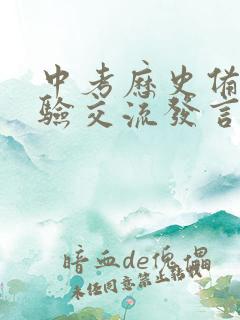 中考历史备
验交流发言
暗血de傀儡
未经同意禁止转载